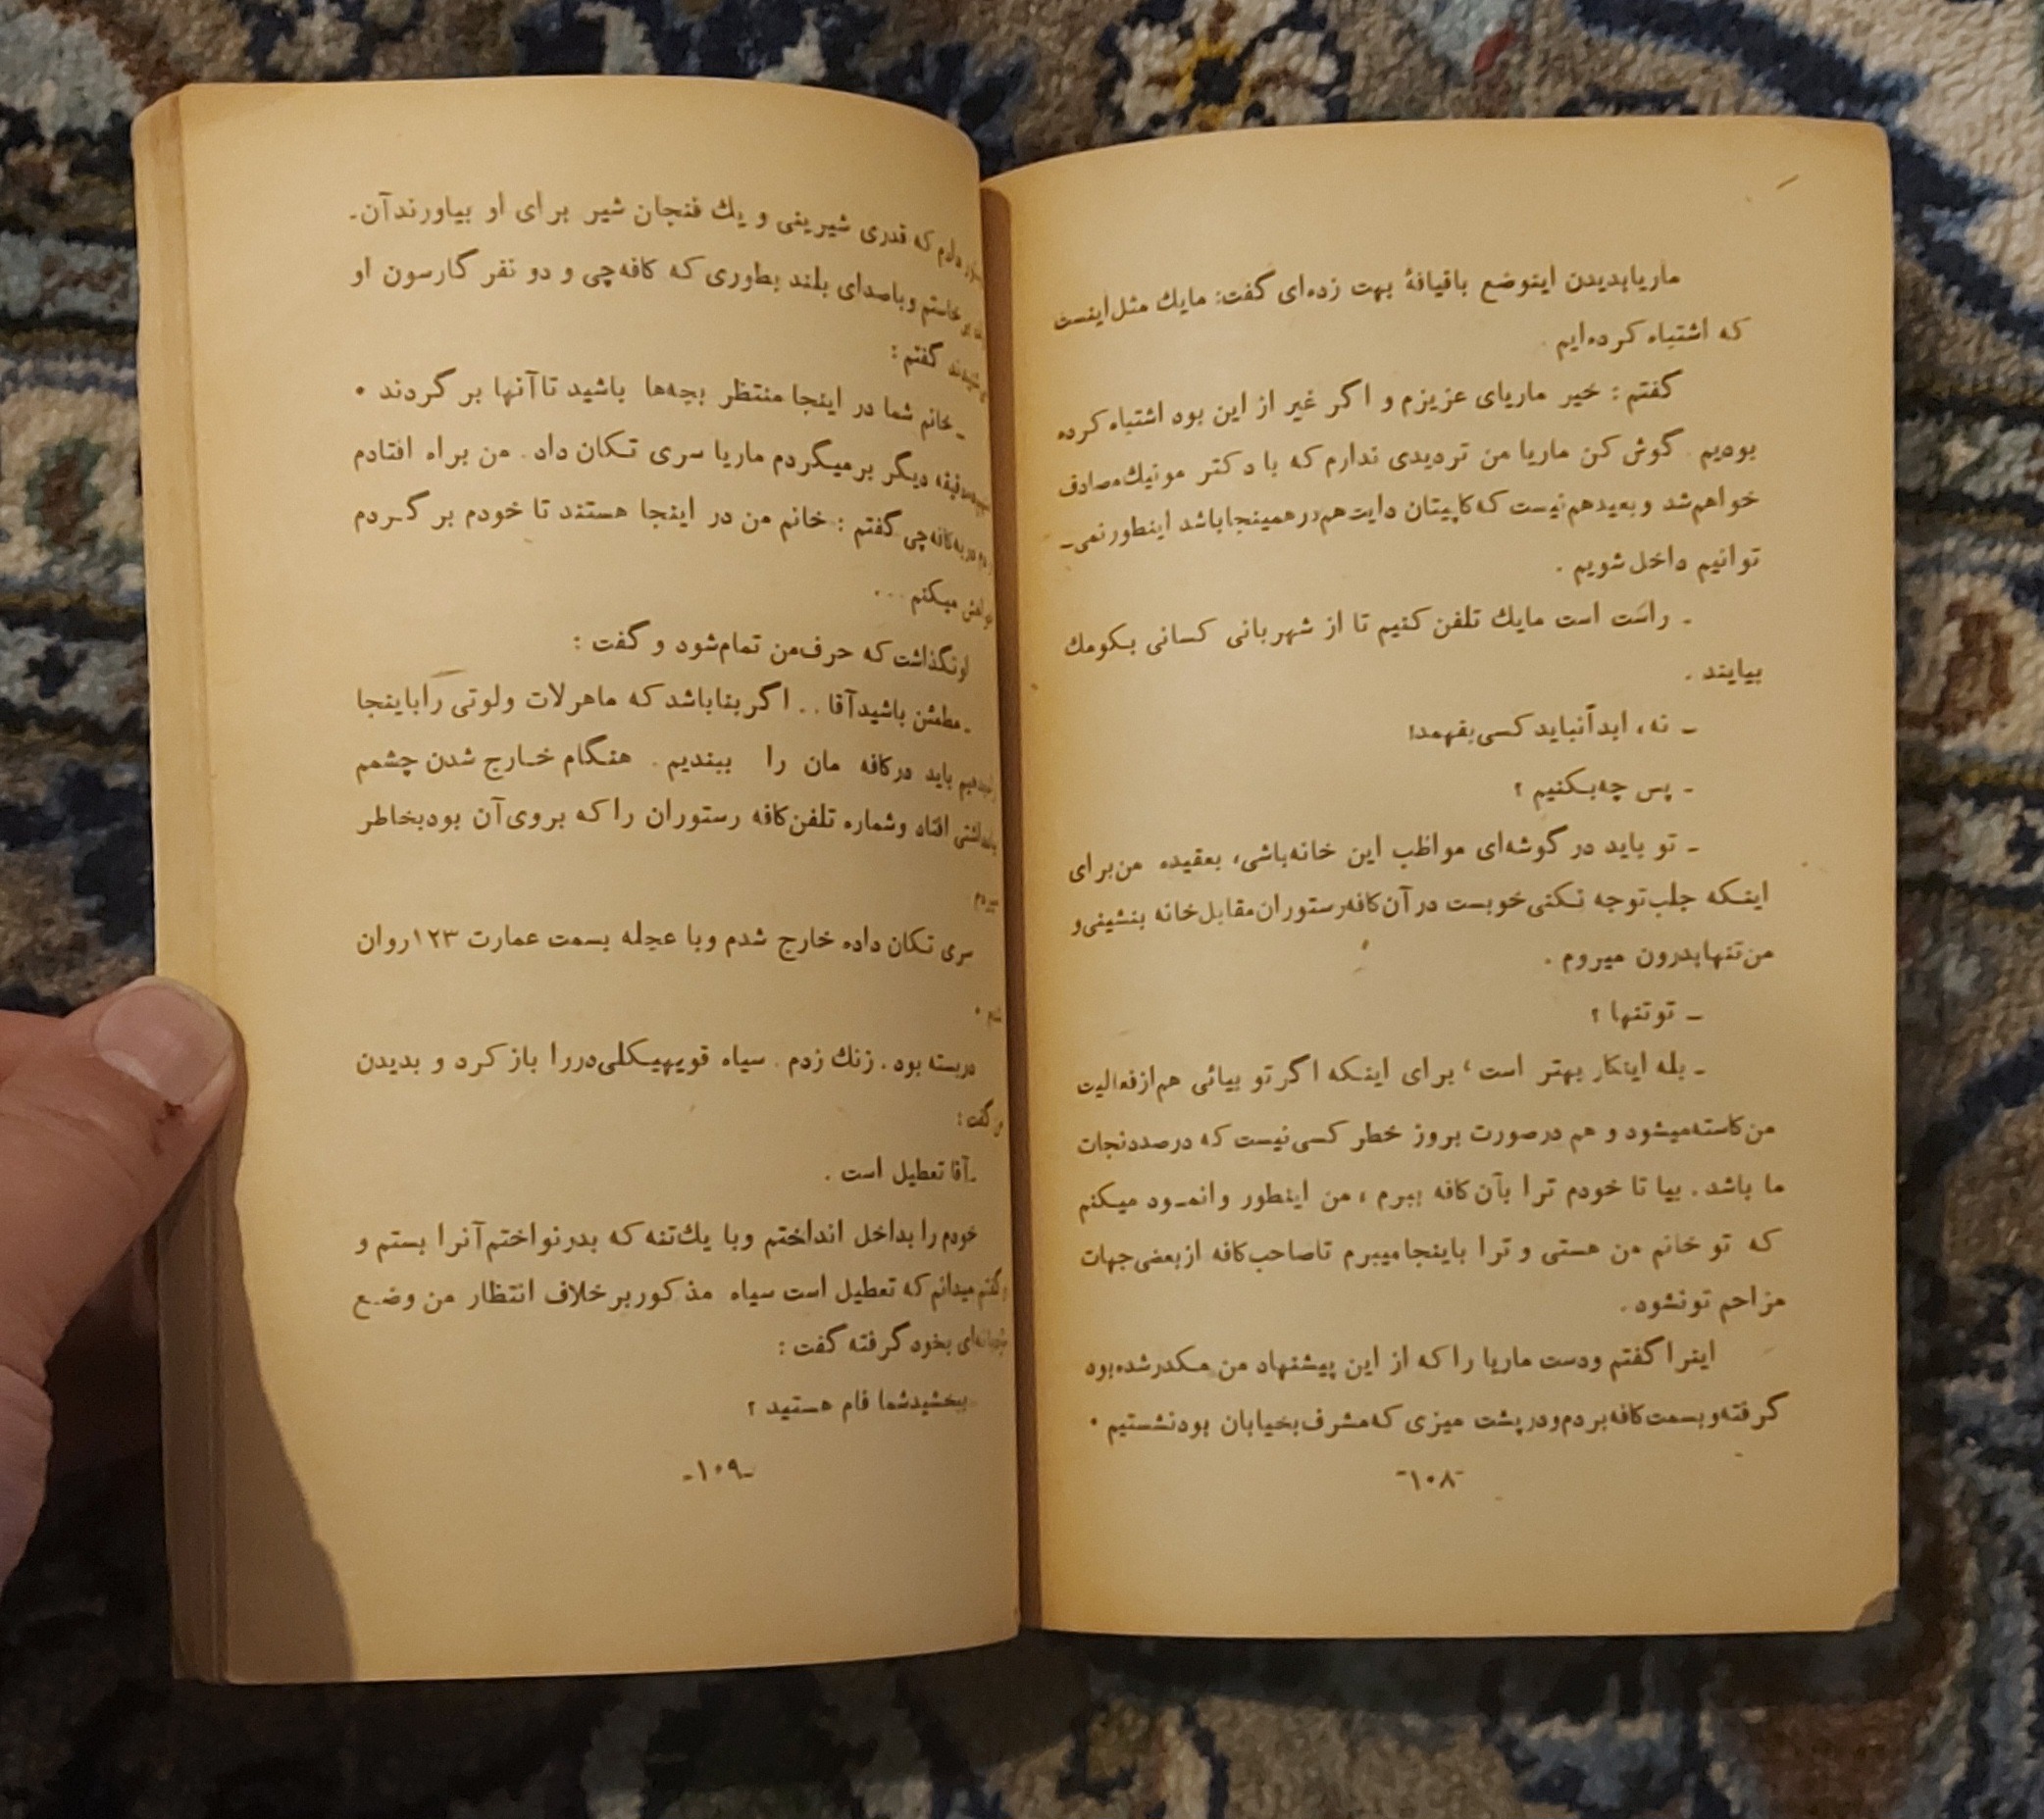 ماریابدیدن اینوضع باقیافهٔ بهت زده‌ای گفت: مایك مثل اینست
که اشتباه کرده‌ایم .
گفتم : خیر ماریای عزیزم و اگر غیر از این بود اشتباه کرده
بودیم . گوش کن ماریا من تردیدی ندارم که با دکتر مونیك مصادف
خواهم شد و بعید هم نیست که کاپیتان دایت هم در همینجا باشد اینطور نمی-
توانیم داخل شویم .
- راست است مایك تلفن کنیم تا از شهربانی کسانی بکومك
بیایند .
- نه، ابدآنباید کسی بفهمد!
- پس چه بکنیم ؟
- تو باید در گوشه‌ای مواظب این خانه باشی، بعقیده من برای
اینکه جلب توجه نکنی خوبست در آن کافه رستوران مقابل خانه بنشینی و
من تنها بدرون میروم .
- تو تنها ؟
- بله اینکار بهتر است، برای اینکه اگر تو بیائی هم از فعالیت
من کاسته میشود و هم در صورت بروز خطر کسی نیست که درصدد نجات
ما باشد . بیا تا خودم ترا بآن کافه ببرم ، من اینطور وانمـود میکنم
که تو خانم من هستی و ترا باینجا میبرم تا صاحب کافه از بعضی جهات
مزاحم تو نشود .
اینرا گفتم و دست ماریا را که از این پیشنهاد من مکدر شده بود
گرفته و بسمت کافه بردم و در پشت میزی که مشرف بخیابان بود نشستیم .
-۱۰۸-
دادم که قدری شیرینی و یك فنجان شیر برای او بیاورند آن-
برخاستم و با صدای بلند بطوری که کافه چی و دو نفر گارسون او
گفتم :
- خانم شما در اینجا منتظر بچه‌ها باشید تا آنها بر گردند .
دقیقه دیگر بر میگردم ماریا سری تکان داد . من براه افتادم
به کافه چی گفتم : خانم من در اینجا هستند تا خودم بر گـردم
میکنم ...
او نگذاشت که حرف من تمام شود و گفت :
- مطمئن باشید آقا .. اگر بنا باشد که ما هر لات و لوتی را باینجا
باید در کافه مان را ببندیم . هنگام خـارج شدن چشمم
افتاد و شماره تلفن کافه رستوران را که بروی آن بود بخاطر
سپردم
سری تکان داده خارج شدم و با عجله بسمت عمارت ۱۲۳ روان
شدم .
در بسته بود . زنك زدم . سیاه قویهیکلی در را باز کرد و بدیدن
من گفت :
- آقا تعطیل است .
خودم را بداخل انداختم و با یك تنه که بدر نواختم آنرا بستم و
گفتم میدانم که تعطیل است سیاه مذکور برخلاف انتظار من وضـع
بخود گرفته گفت :
- ببخشید شما فام هستید ؟
-۱۰۹-